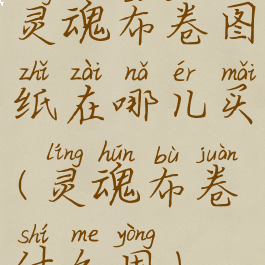 灵魂布卷图
zhǐ zài nǎ ér mǎi
纸在哪儿买
líng hún bù juàn
(灵魂布卷
shí me yòng